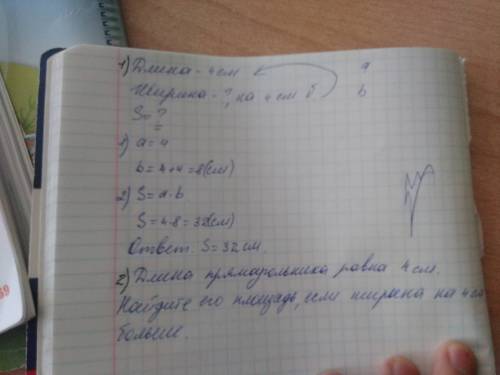 1) Длина - 4 см a
Ширина - ?, на 4 см б b
S = ?
1) a = 4
b = 4 + 4 = 8(см)
2) S = a · b
S = 4 · 8 = 32(см)
Ответ. S = 32 см.
2) Длина прямоугольника равна 4 см.
Найдите его площадь, если ширина на 4 см
больше.